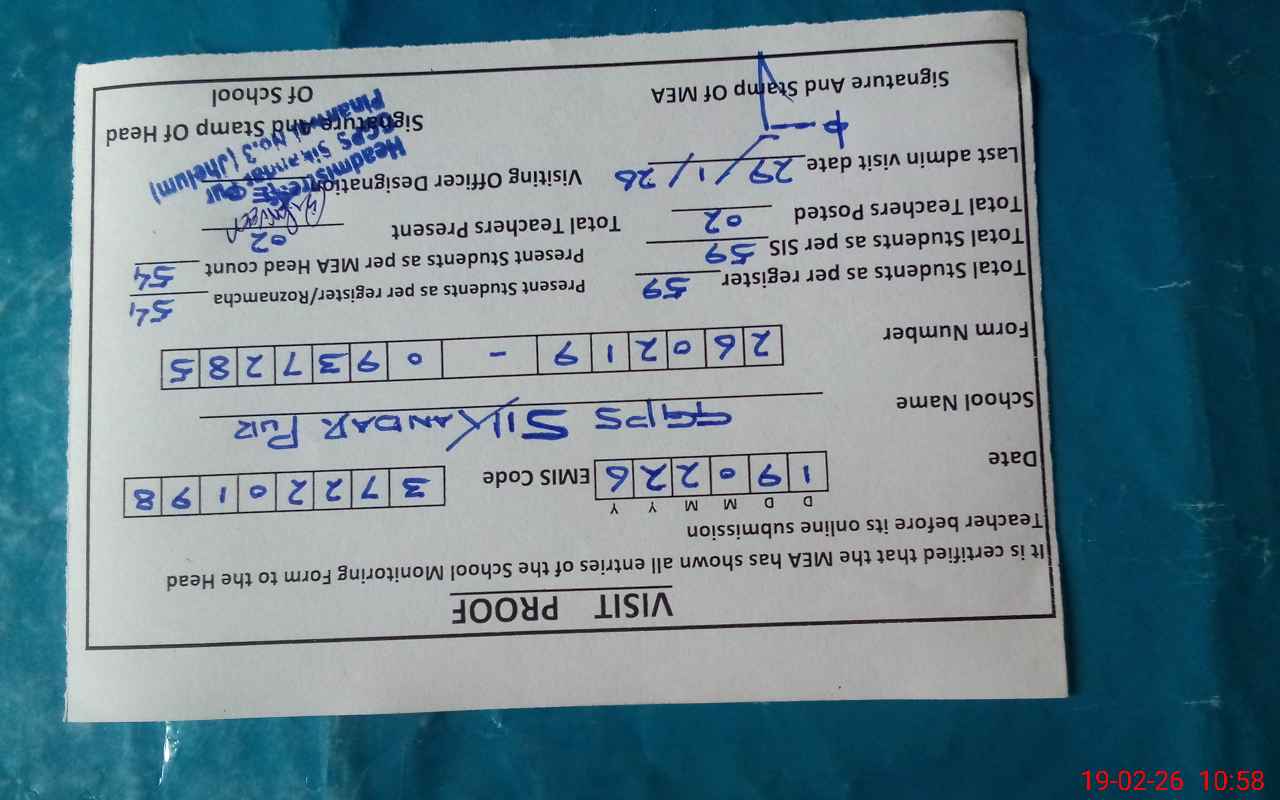 VISIT PROOF
It is certified that the MEA has shown all entries of the School Monitoring Form to the Head
Teacher before its online submission
D D M M Y Y
Date 1 9 0 2 2 6 EMIS Code 3 7 2 2 0 1 9 8
School Name GGPS SIKANDAR PUR
Form Number 2 6 0 2 1 9 - 0 9 3 7 2 8 5
Total Students as per register 59 Present Students as per register/Roznamcha 54
Total Students as per SIS 59 Present Students as per MEA Head count 54
Total Teachers Posted 02 Total Teachers Present 02
Last admin visit date 29/1/26 Visiting Officer Designation
Headmistress
GGPS Sikandar Pur
No.3 (Jhelum)
Signature And Stamp Of MEA Signature And Stamp Of Head
Of School
19-02-26 10:58